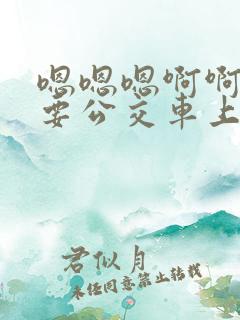 嗯嗯嗯啊啊
要公交車上
君似月
未经同意禁止转载